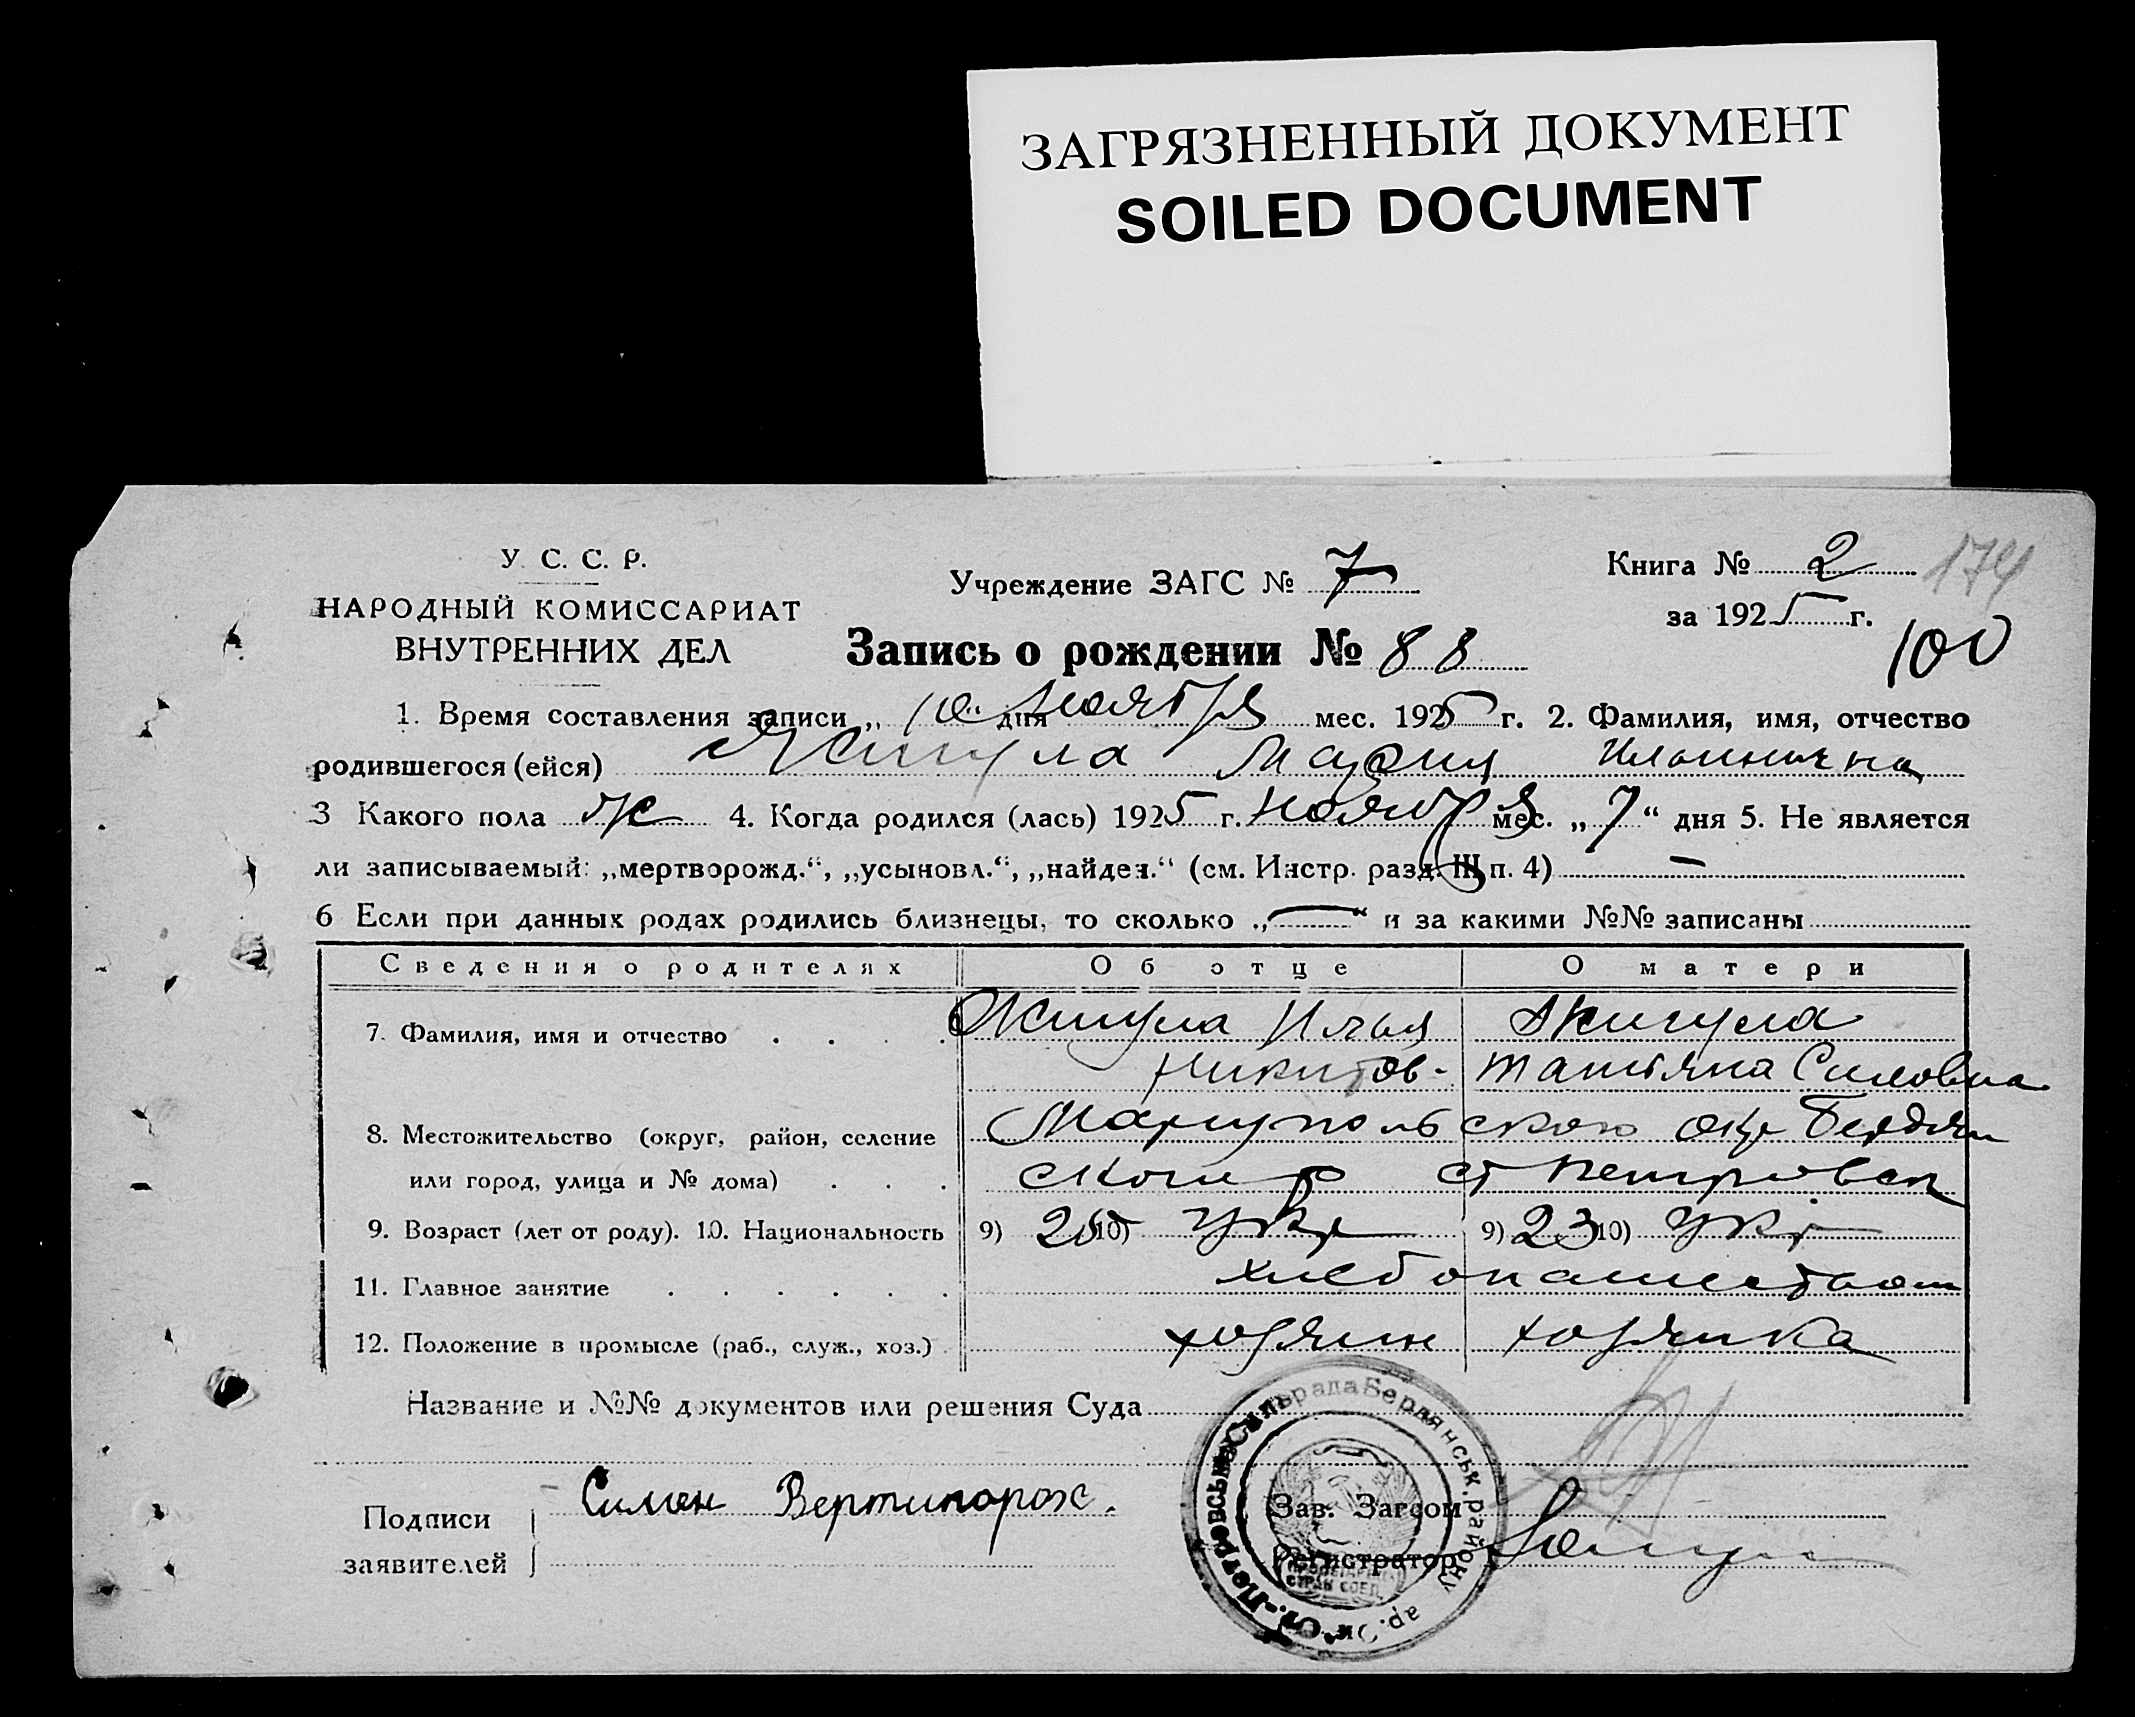 ЗАГРЯЗНЕННЫЙ ДОКУМЕНТ
SOILED DOCUMENT
У. С. С. Р.
НАРОДНЫЙ КОМИССАРИАТ
ВНУТРЕННИХ ДЕЛ
Учреждение ЗАГС № 7
Книга № 2 174
за 1925 г.
100
Запись о рождении № 88
1. Время составления записи „10“ дня Ноября мес. 1925 г. 2. Фамилия, имя, отчество
родившегося (ейся) Мария Ильинична
3 Какого пола ж 4. Когда родился (лась) 1925 г. Ноября мес. „7“ дня 5. Не является
ли записываемый: „мертворожд.“, „усыновл.“, „найден.“ (см. Инстр. разд. III п. 4) —
6 Если при данных родах родились близнецы, то сколько „—“ и за какими №№ записаны
Сведения о родителях Об отце О матери
7. Фамилия, имя и отчество Илья
Никитов- Татьяна Симовна
8. Местожительство (округ, район, селение Мариупольского окр Бердян
или город, улица и № дома) ского р ст Петровск
9. Возраст (лет от роду). 10. Национальность 9) 10) Укр 9) 23 10) Укр
11. Главное занятие хлебопашеством
12. Положение в промысле (раб., служ., хоз.) хозяин хозяйка
Название и №№ документов или решения Суда
Подписи заявителей Симен Вертипорох.
Зав. Загсом
Регистратор
Ст.-Петровська Сільрада Бердянськ. району